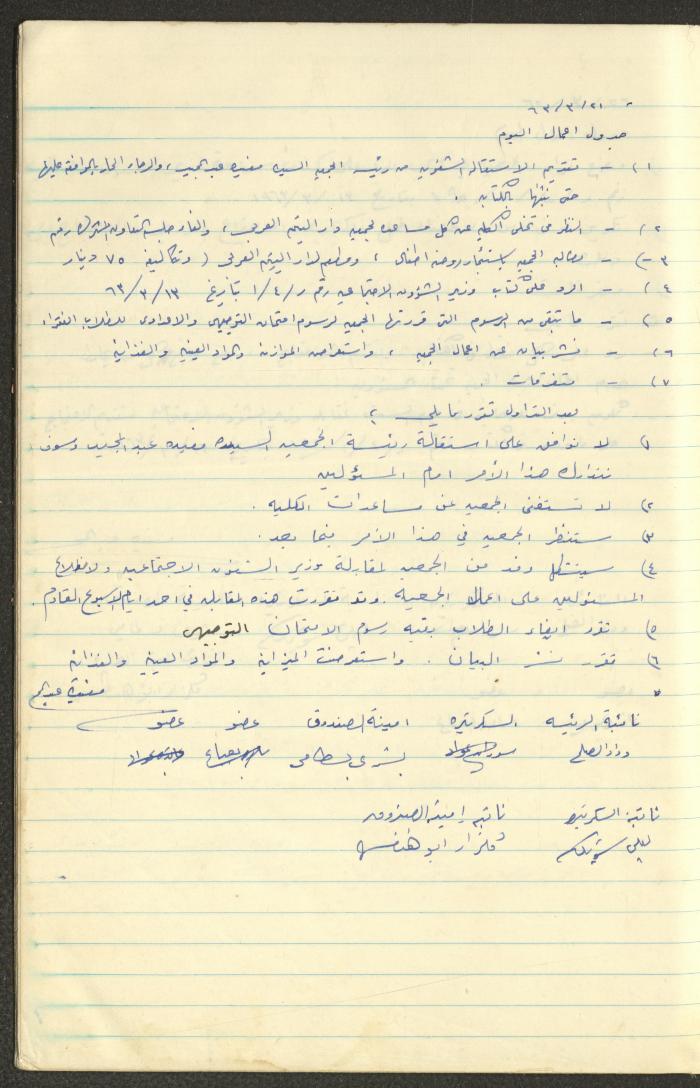 ٦٣/٣/٢١
جدول اعمال اليوم
١) - تقديم الاستقاله الشفويه من رئيسة الجمعيه السيده مفيده عبد المجيد ، والرجاء الحار بالموافقة عليها
حتى تثبتها بالكتابه .
٢) - النظر في تخلي الكليه عن كل مساعده لجمعية دار اليتيم العربي ، والغاء طلب التعاون المشترك رقم
٣) - مطالبه الجمعيه باستئجار روضه اطفال ، ومطعم لدار اليتيم العربي ( وتكاليفه ٧٥ دينار
٤) - الرد على كتاب وزير الشؤون الاجتماعيه رقم ر/٤/١ بتاريخ ٦٣/٣/١٣
٥) - ما تبقى من الرسوم التي قررتها الجمعيه لرسوم امتحان التوجيهي والاعدادي للطلاب الفقراء
٦) - نشر بيان عن اعمال الجمعيه ، واستعراض الموازنه والمواد العينيه والغذائية
٧) - متفرقات .
بعد التداول تقرر ما يلي :
١) لا نوافق على استقالة رئيسة الجمعيه السيده مفيده عبد المجيد وسوف
نتدارك هذا الأمر امام المسؤولين
٢) لا تستغني الجمعيه عن مساعدات الكليه .
٣) ستنظر الجمعيه في هذا الأمر فيما بعد .
٤) سينتقل وفد من الجمعيه لمقابلة وزير الشئون الاجتماعيه ولاطلاع
المسئولين على اعمال الجمعيه . وقد تقررت هذه المقابله في احد ايام الاسبوع القادم .
٥) تقرر ايفاء الطلاب بقية رسوم الامتحان التوجيهي
٦) تقرر نشر البيان . واستعرضت الميزانية والمواد العينيه والغذائية
نائبة الرئيسه السكرتيره امينة الصندوق عضو عضو
وداد الصالح بشرى بسطامي
نائبة السكرتيره نائبة امينة الصندوق
ليلى